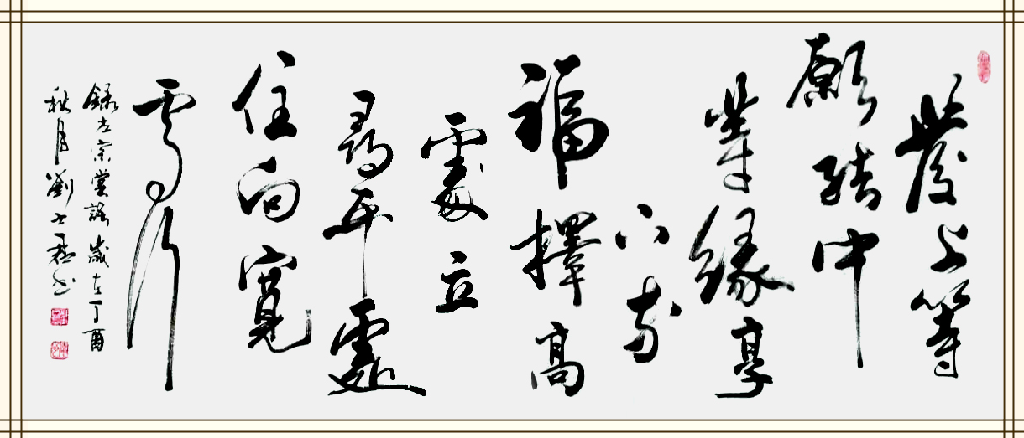 發上等
願結中
等緣享
下等
福擇高
處立
尋平處
住向寬
處行
錄左宗棠語歲在丁酉
秋月劉